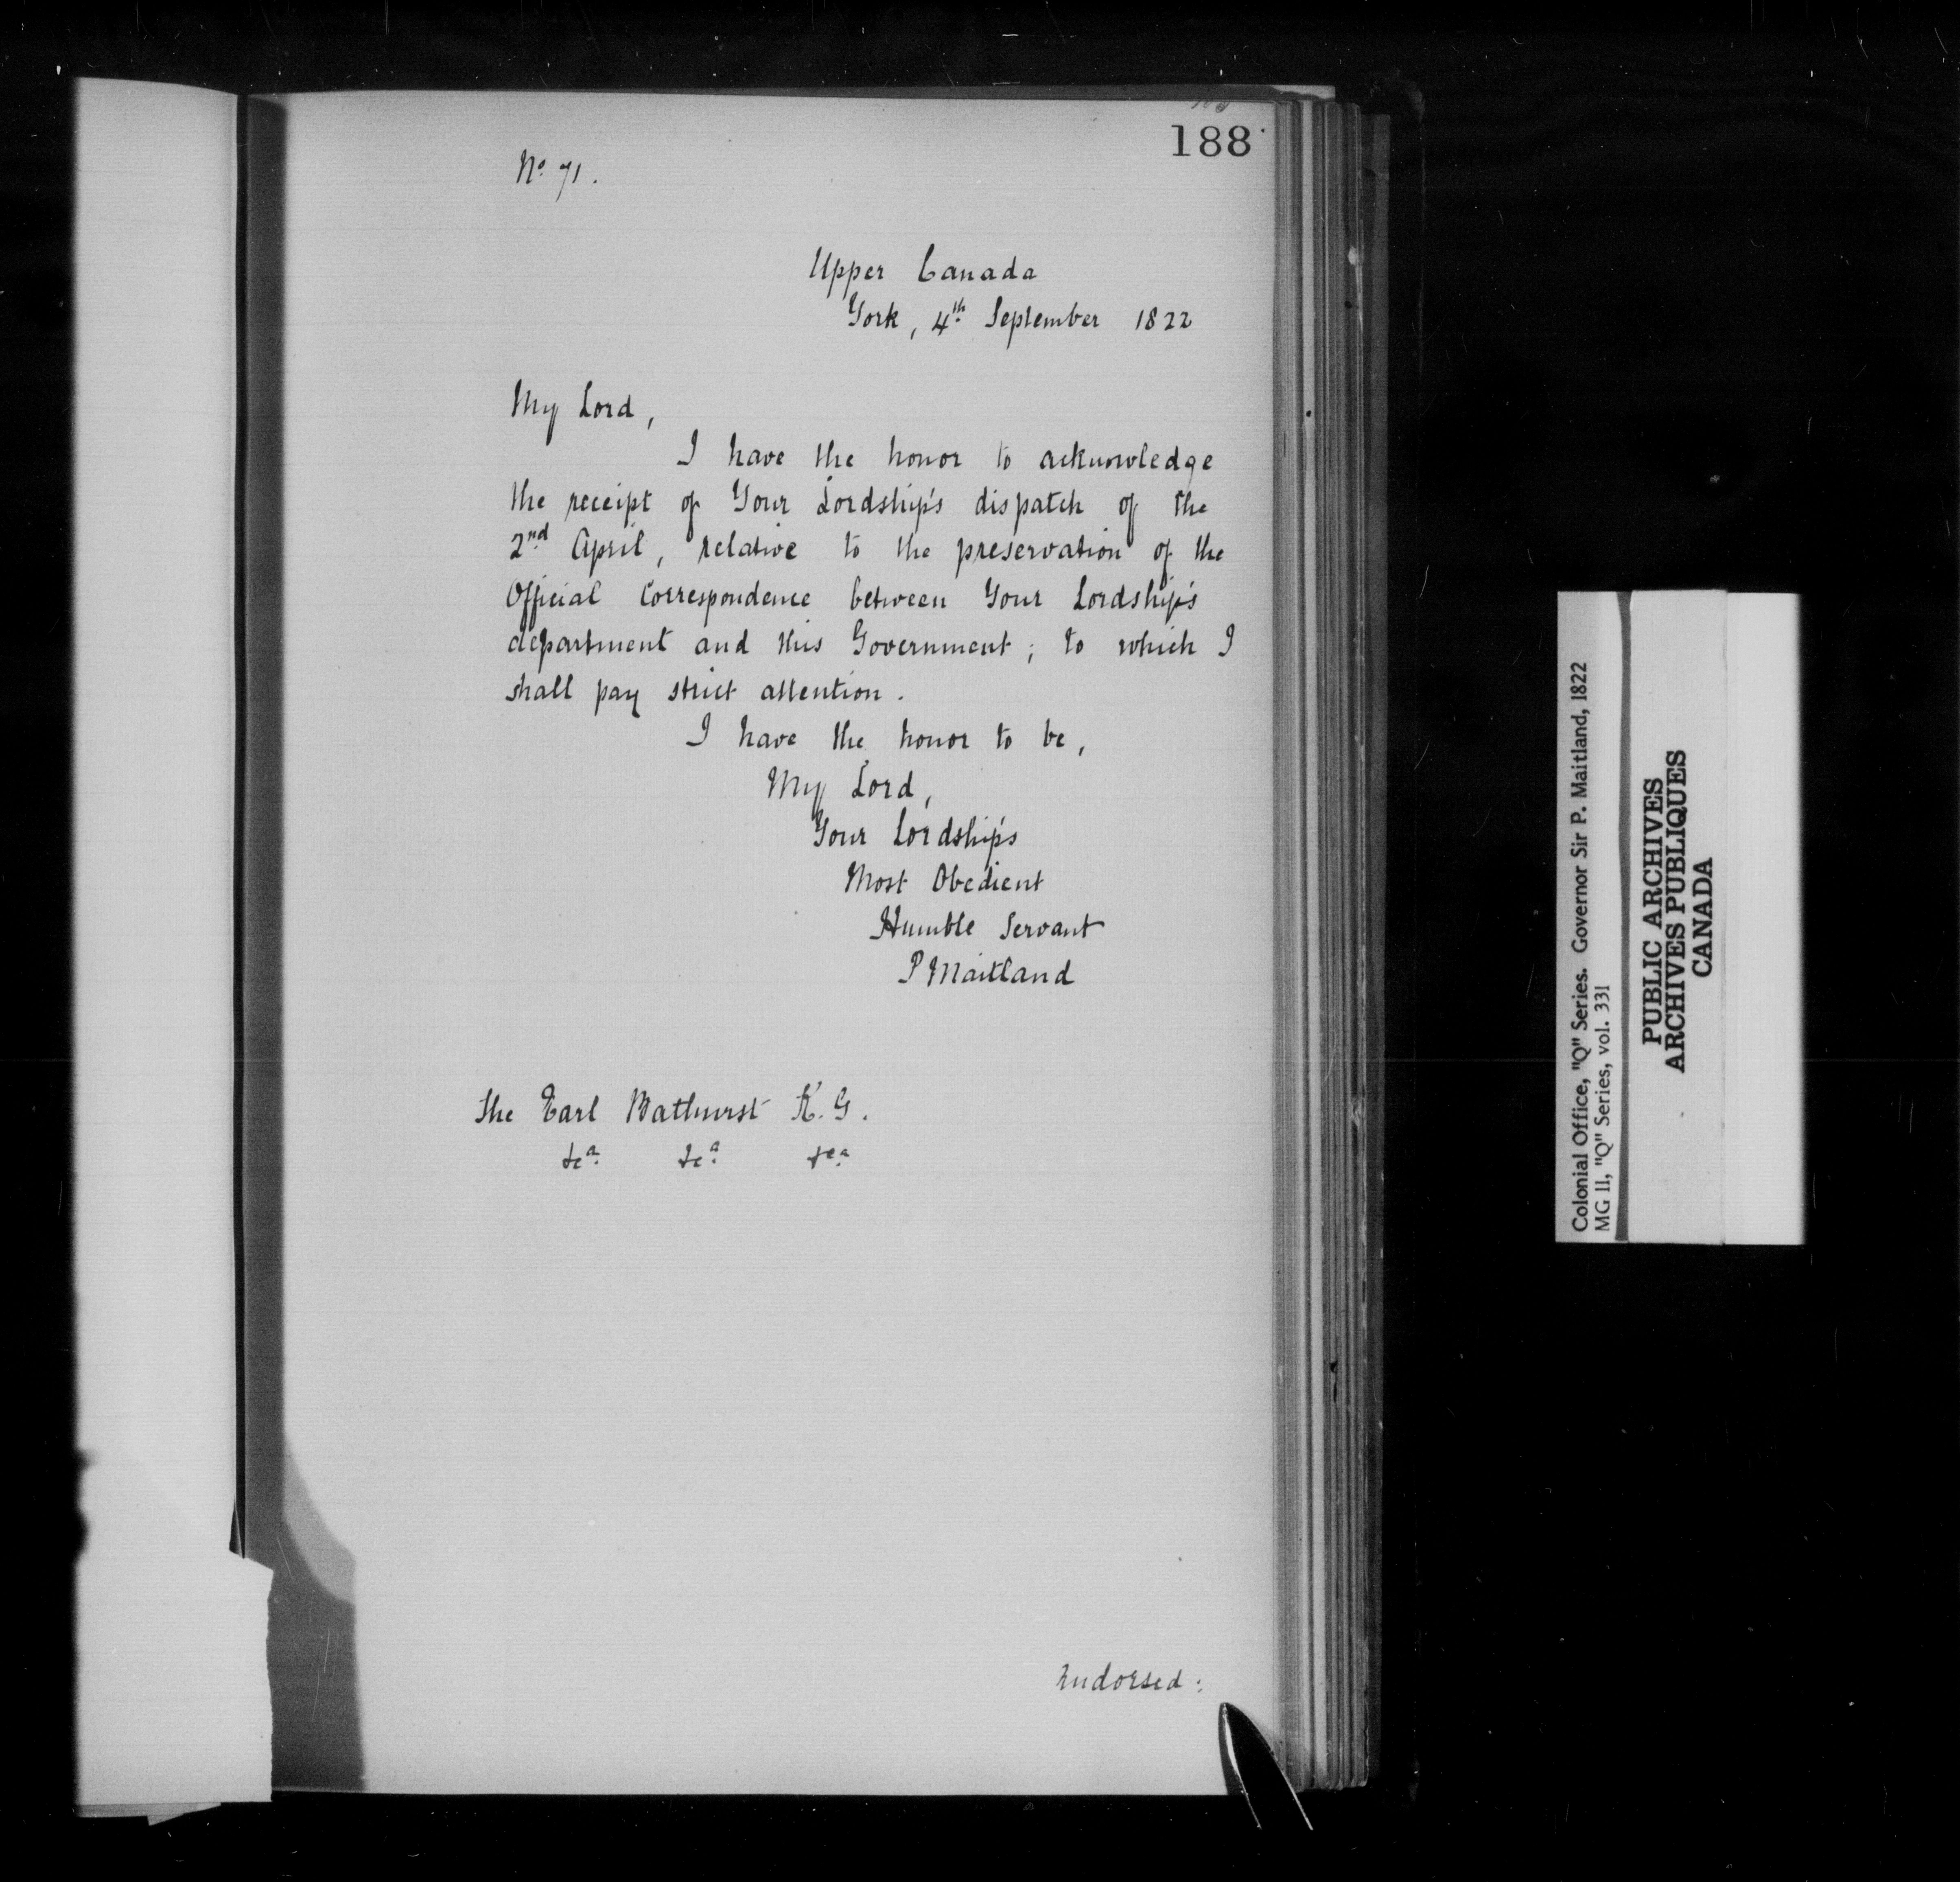 188
No. 71.
Upper Canada
York, 4th September 1822
My Lord,
I have the honor to acknowledge
the receipt of Your Lordship's dispatch of the
2nd April, relative to the preservation of the
Official Correspondence between Your Lordship's
department and this Government; to which I
shall pay strict attention.
I have the honor to be,
My Lord,
Your Lordship's
Most Obedient
Humble Servant
P Maitland
The Earl Bathurst K.G.
&ca &ca &ca
Endorsed:
Colonial Office, "Q" Series. Governor Sir P. Maitland, 1822
MG 11, "Q" Series, vol. 331
PUBLIC ARCHIVES
ARCHIVES PUBLIQUES
CANADA